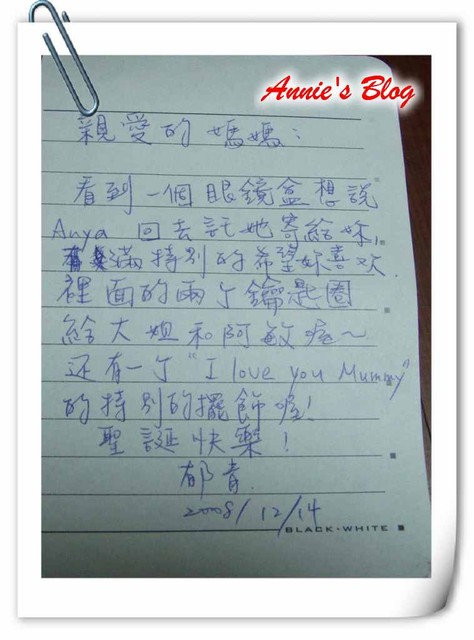 Annie's Blog
親愛的媽媽：
看到一個眼鏡盒想說
Anya 回去託她寄給妳，
滿特別的希望妳喜歡.
裡面的兩个鑰匙圈
給大姐和阿敏喔～
还有一个"I love you Mummy"
的特別的擺飾喔!
聖誕快樂!
郁青.
2008/12/14
BLACK·WHITE